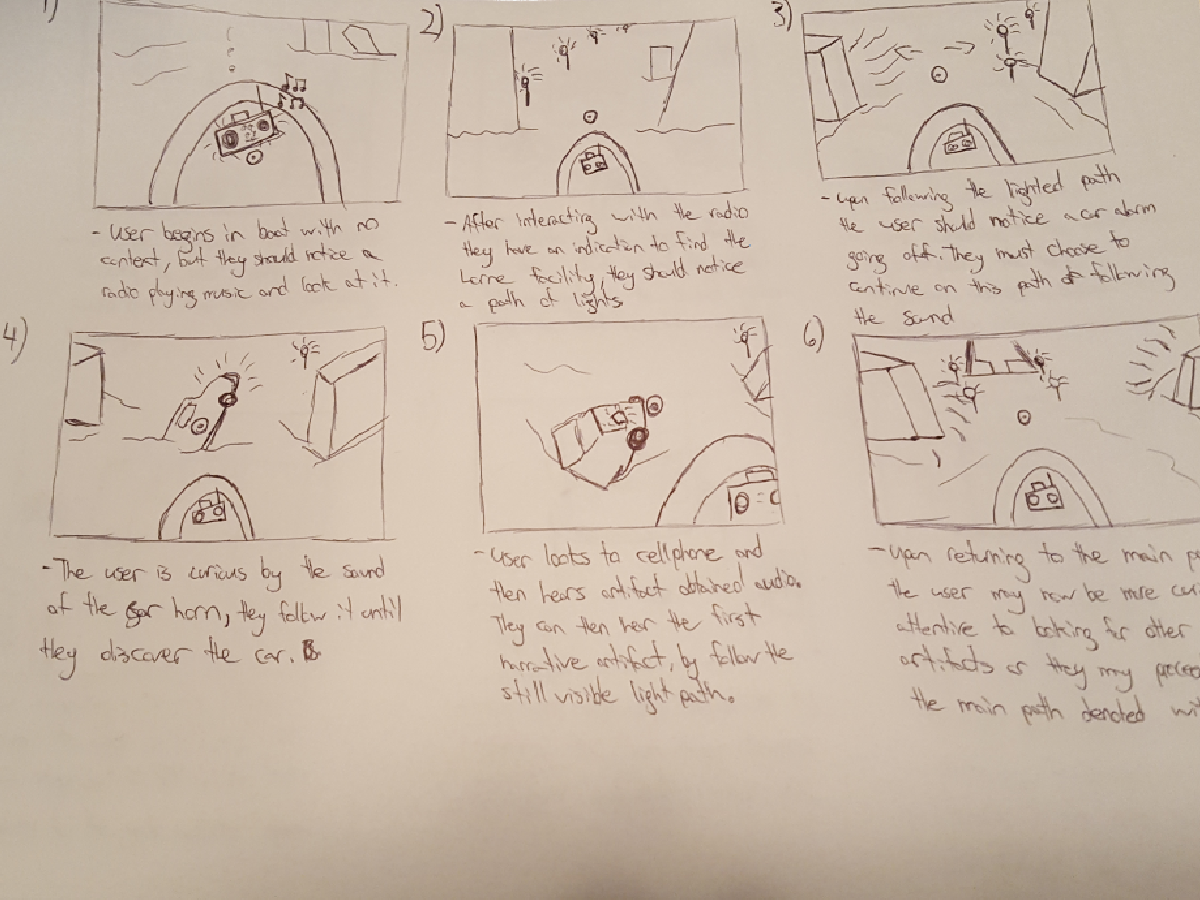 1)
- User begins in boat with no
context, but they should notice a
radio playing music and look at it.
2)
- After interacting with the radio
they have an indication to find the
facility, they should notice
a path of lights
3)
- Upon following the lighted path
the user should notice a car alarm
going off. They must choose to
continue on this path or following
the sound
4)
- The user is curious by the sound
of the car horn, they follow it until
they discover the car.
5)
- User looks to cellphone and
then hears artifact obtained audio.
They can then hear the first
narrative artifact, by follow the
still visible light path.
6)
- Upon returning to the main
the user may now be more
attentive to looking for other
artifacts or they may
the main path denoted